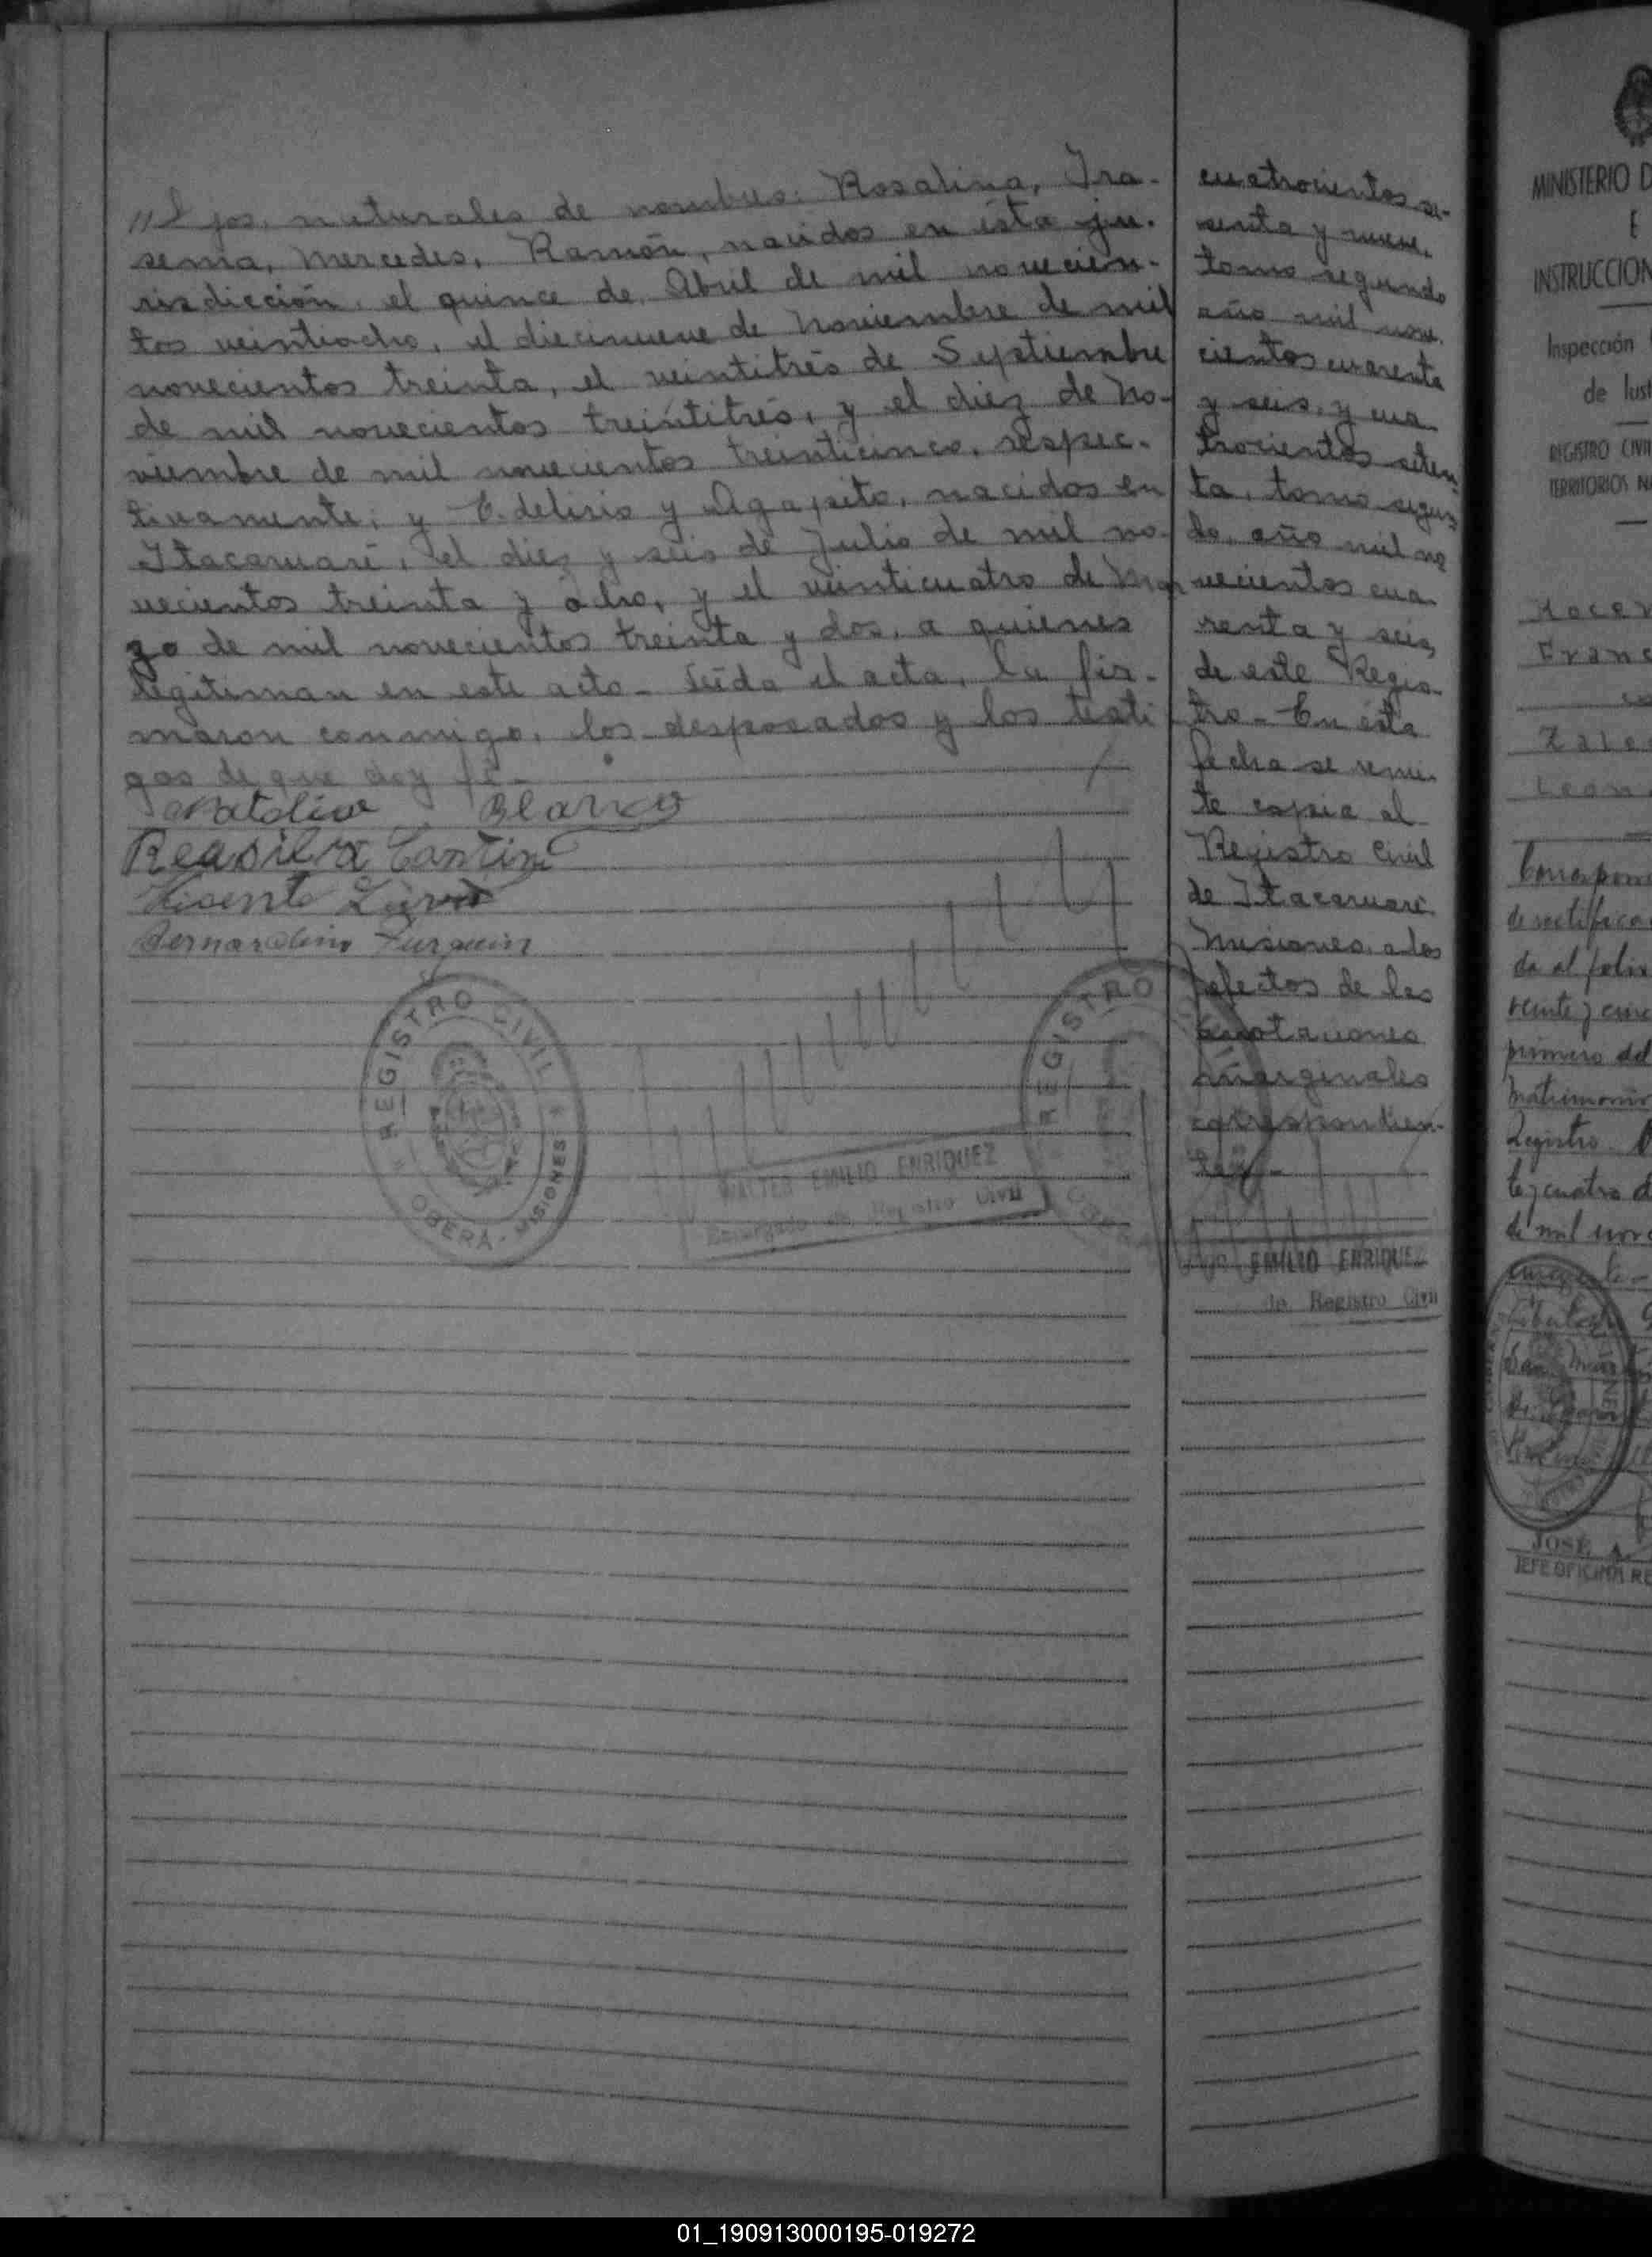 "jos, naturales de nombres: Rosalina, Ira-
sema, Mercedes, Ramón, nacidos en ésta ju-
risdicción, el quince de Abril de mil novecien-
tos veintiocho, el diecinueve de Noviembre de mil
novecientos treinta, el veintitrés de Septiembre
de mil novecientos treintitrés, y el diez de No-
viembre de mil novecientos treinticinco, respec-
tivamente; y Edelirio y Agapito, nacidos en
Itacaruaré, el diez y seis de Julio de mil no-
vecientos treinta y ocho, y el veinticuatro de Mar
zo de mil novecientos treinta y dos, a quienes
legitiman en este acto- Leída el acta, la fir-
maron conmigo, los desposados y los testi
gos de que doy fé-
Natalicio Blanco
Reasilvia Cantini
Visente
Bernardino
REGISTRO CIVIL
OBERÁ - MISIONES
WALTER EMILIO ENRIQUEZ
Encargado de Registro Civil
cuatrocientos se-
senta y nueve,
tomo segundo
año mil nove-
cientos cuarenta
y seis, y cua-
trocientos seten-
ta, tomo segun-
do, año mil no
vecientos cua-
renta y seis,
de este Regis-
tro- En ésta
fecha se remi-
te copia al
Registro Civil
de Itacaruaré
Misiones, a los
efectos de las
anotaciones
marginales
correspondien-
tes-
REGISTRO
EMILIO ENRIQUEZ
de Registro Civil
MINISTERIO D
E
INSTRUCCION
Inspección
de Just
REGISTRO CIVIL
TERRITORIOS NA
Franc
Zale
Leon
Correspon
de rectifica
da al folio
veinte y cinc
primero del
Matrimonio
Registro.
te y cuatro d
de mil nove
JOSÉ A.
JEFE OFICINA RE
01_190913000195-019272